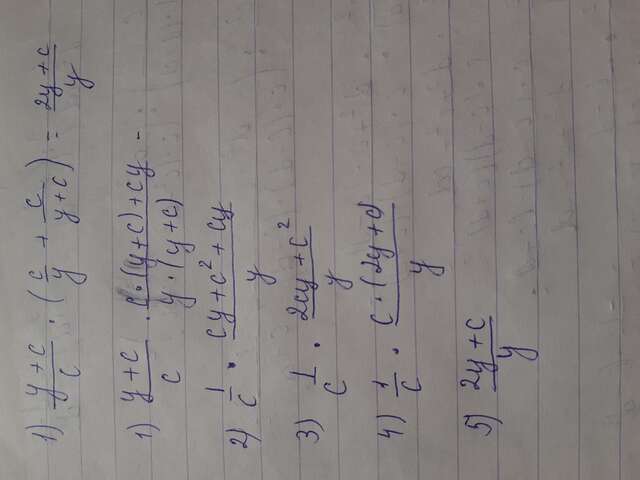 1) (y+c)/c · (c/y + c/(y+c)) = (2y+c)/y
1) (y+c)/c · (c·(y+c)+cy)/(y·(y+c)) -
2) 1/c · (cy+c²+cy)/y
3) 1/c · (2cy+c²)/y
4) 1/c · (c·(2y+c))/y
5) (2y+c)/y